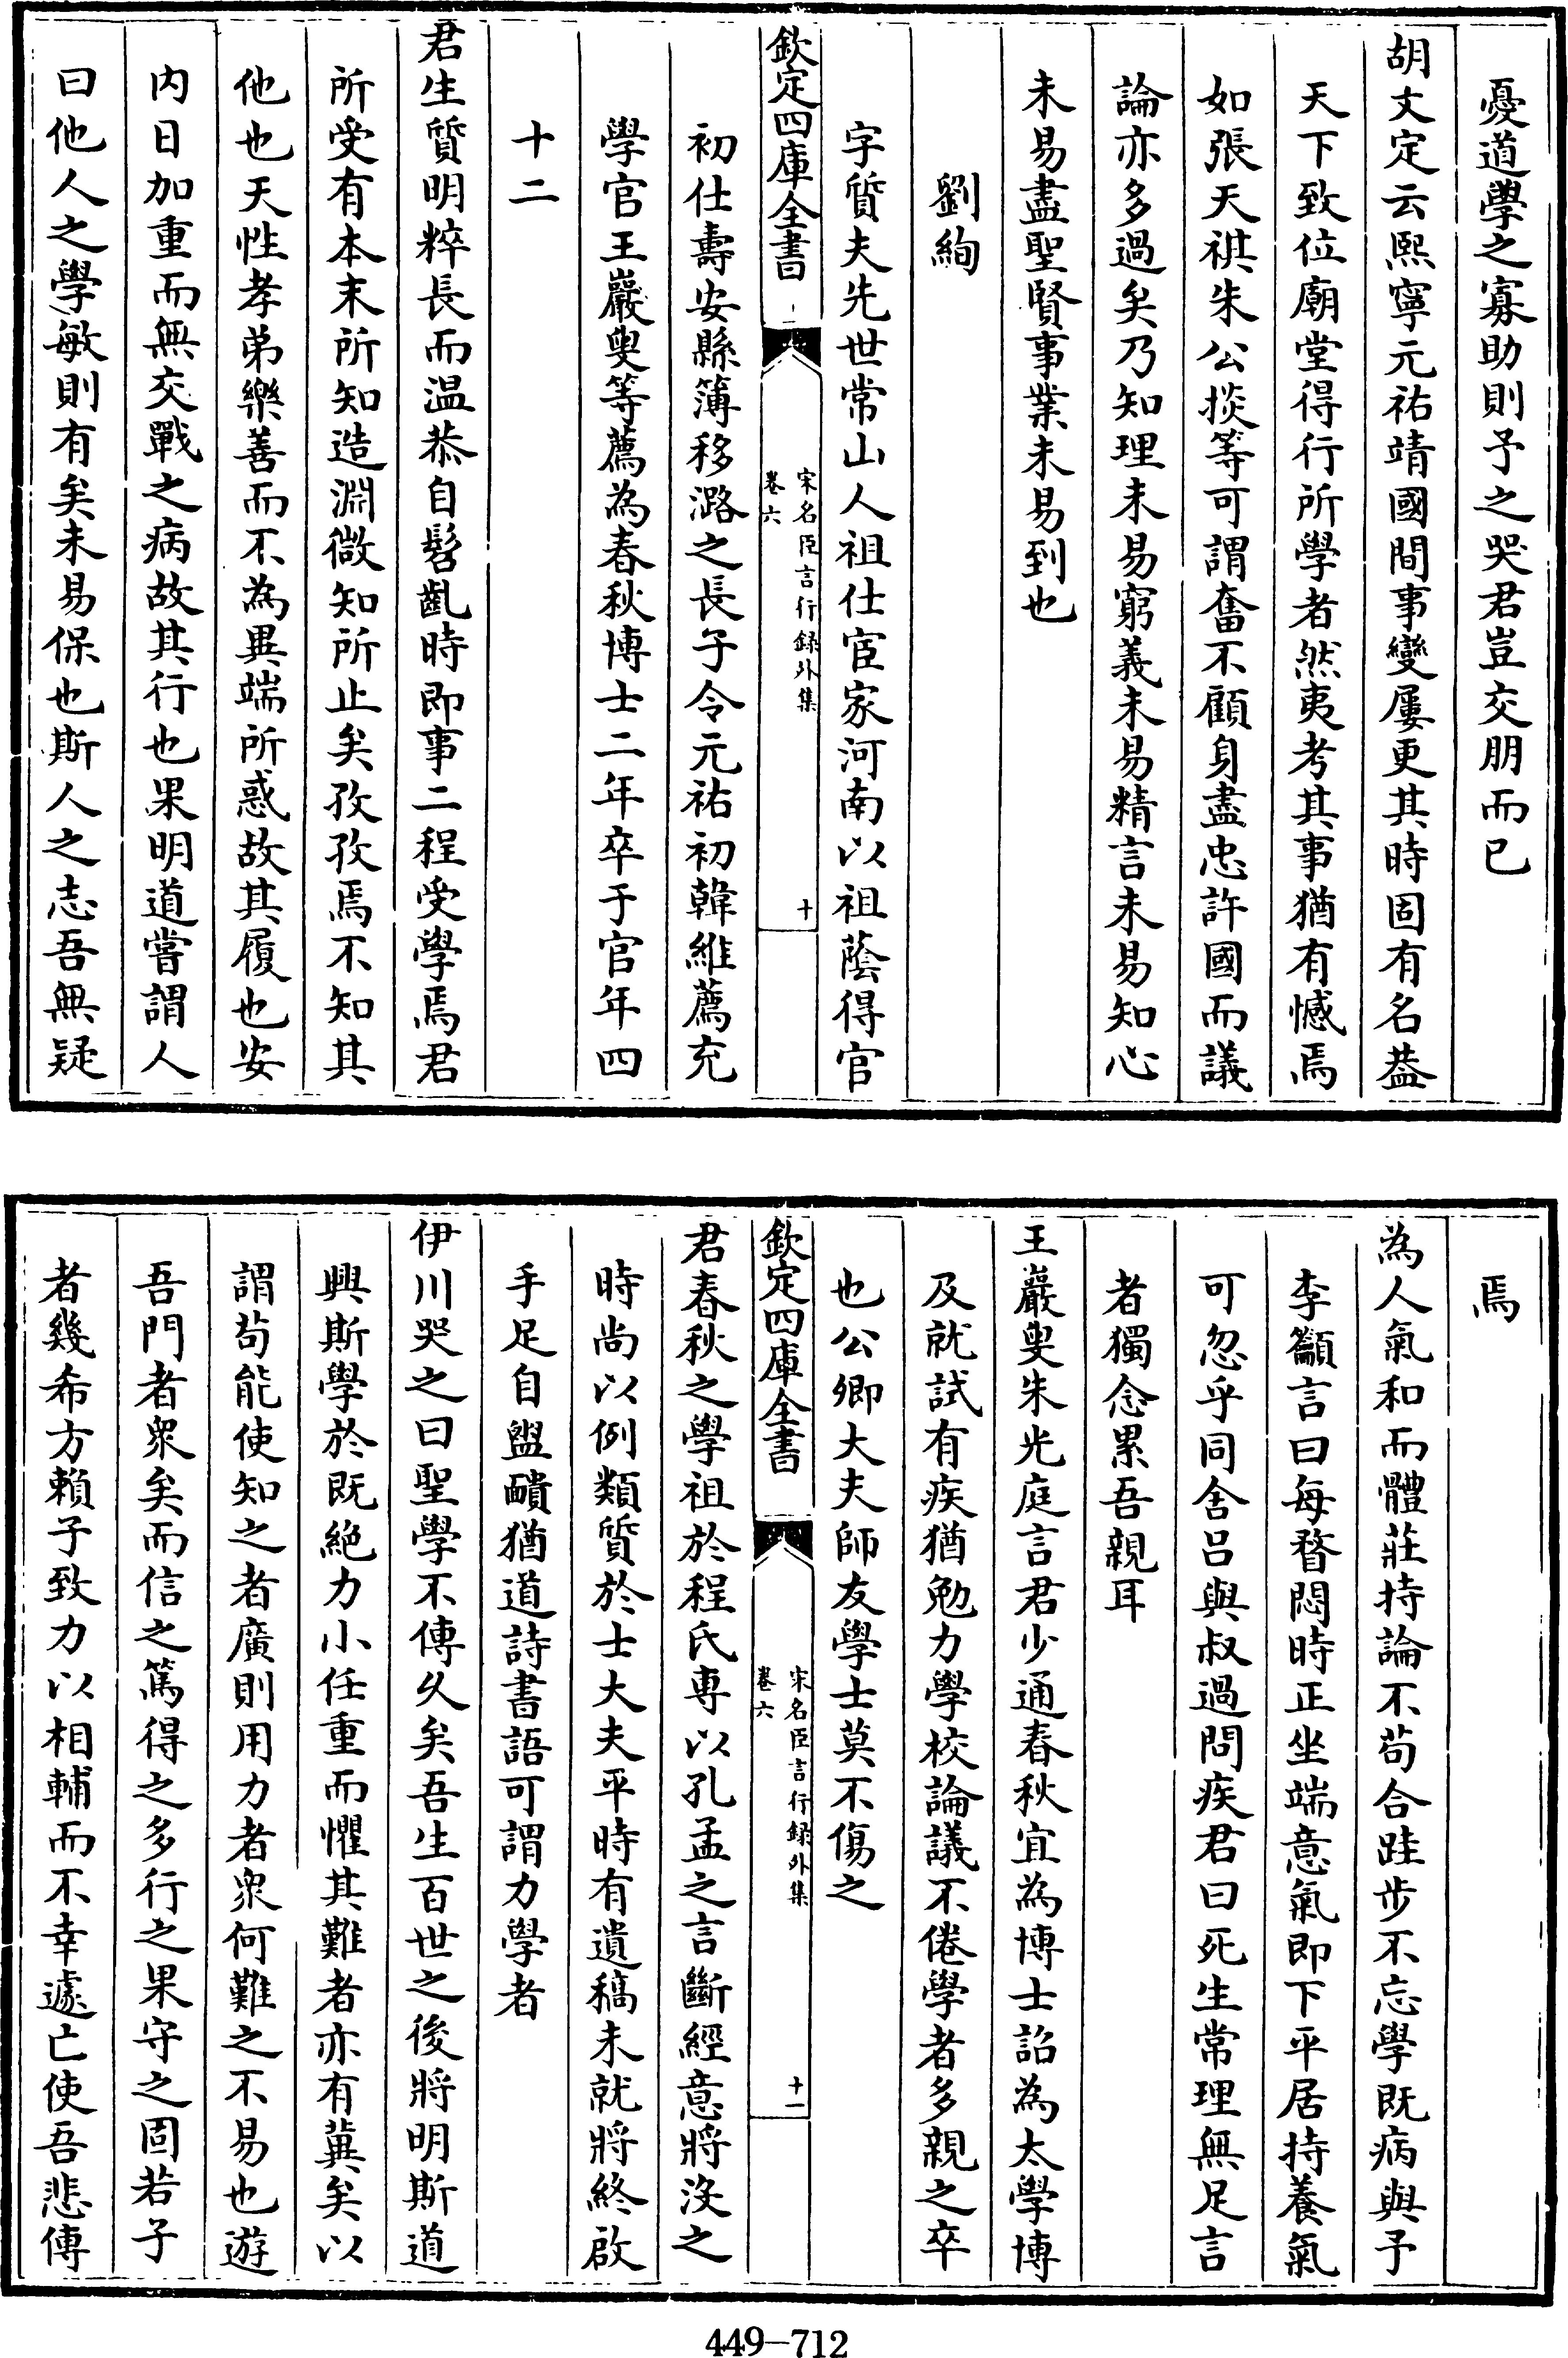 憂道學之寡助則予之哭君豈交朋而已
胡文定云熙寧元祐靖國間事變屢更其時固有名葢
天下致位廟堂得行所學者然夷考其事猶有憾焉
如張天祺朱公掞等可謂奮不顧身盡忠許國而議
論亦多過矣乃知理未易窮義未易精言未易知心
未易盡聖賢事業未易到也
劉絢
字質夫先世常山人祖仕宦家河南以祖蔭得官
欽定四庫全書
宋名臣言行錄外集
卷六
十
初仕壽安縣簿移潞之長子令元祐初韓維薦充
學官王巖叟等薦為春秋博士二年卒于官年四
十二
君生質明粹長而温恭自髫齓時即事二程受學焉君
所受有本末所知造淵微知所止矣孜孜焉不知其
他也天性孝弟樂善而不為異端所惑故其履也安
内日加重而無交戰之病故其行也果明道嘗謂人
曰他人之學敏則有矣未易保也斯人之志吾無疑
焉
為人氣和而體莊持論不茍合跬步不忘學既病與予
李籲言曰每瞀悶時正坐端意氣即下平居持養氣
可忽乎同舍吕與叔過問疾君曰死生常理無足言
者獨念累吾親耳
王巖叟朱光庭言君少通春秋宜為博士詔為太學博
及就試有疾猶勉力學校論議不倦學者多親之卒
也公卿大夫師友學士莫不傷之
欽定四庫全書
宋名臣言行錄外集
卷六
十一
君春秋之學祖於程氏専以孔孟之言斷經意將沒之
時尚以例類質於士大夫平時有遺稿未就將終啟
手足自盥靧猶道詩書語可謂力學者
伊川哭之曰聖學不傳久矣吾生百世之後將明斯道
興斯學於既絶力小任重而懼其難者亦有冀矣以
謂茍能使知之者廣則用力者衆何難之不易也遊
吾門者衆矣而信之篤得之多行之果守之固若子
者幾希方賴子致力以相輔而不幸遽亡使吾悲傳
449-712